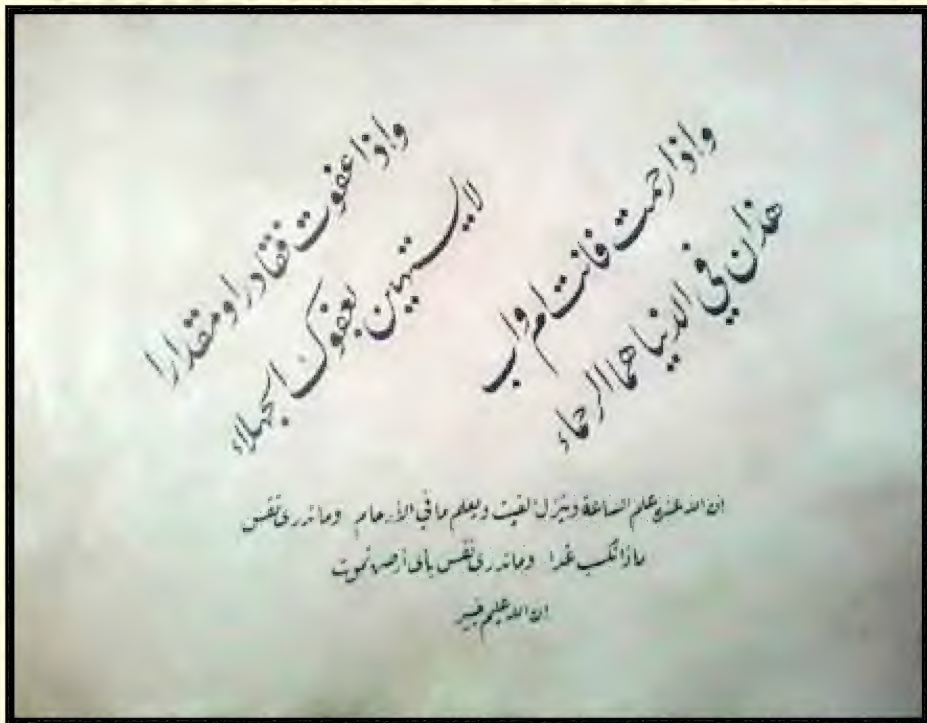 واذا رحمت فانت ام واب
هذان في الدنيا هما الرحماء
واذا عفوت فقادرا ومقدارا
لا يستهين بعفوك الجهلاء
ان الله عنده علم الساعة وينزل الغيث ويعلم ما في الأرحام وما تدرى نفس
ماذا تكسب غدا وما تدرى نفس بأى أرض تموت
ان الله عليم خبير